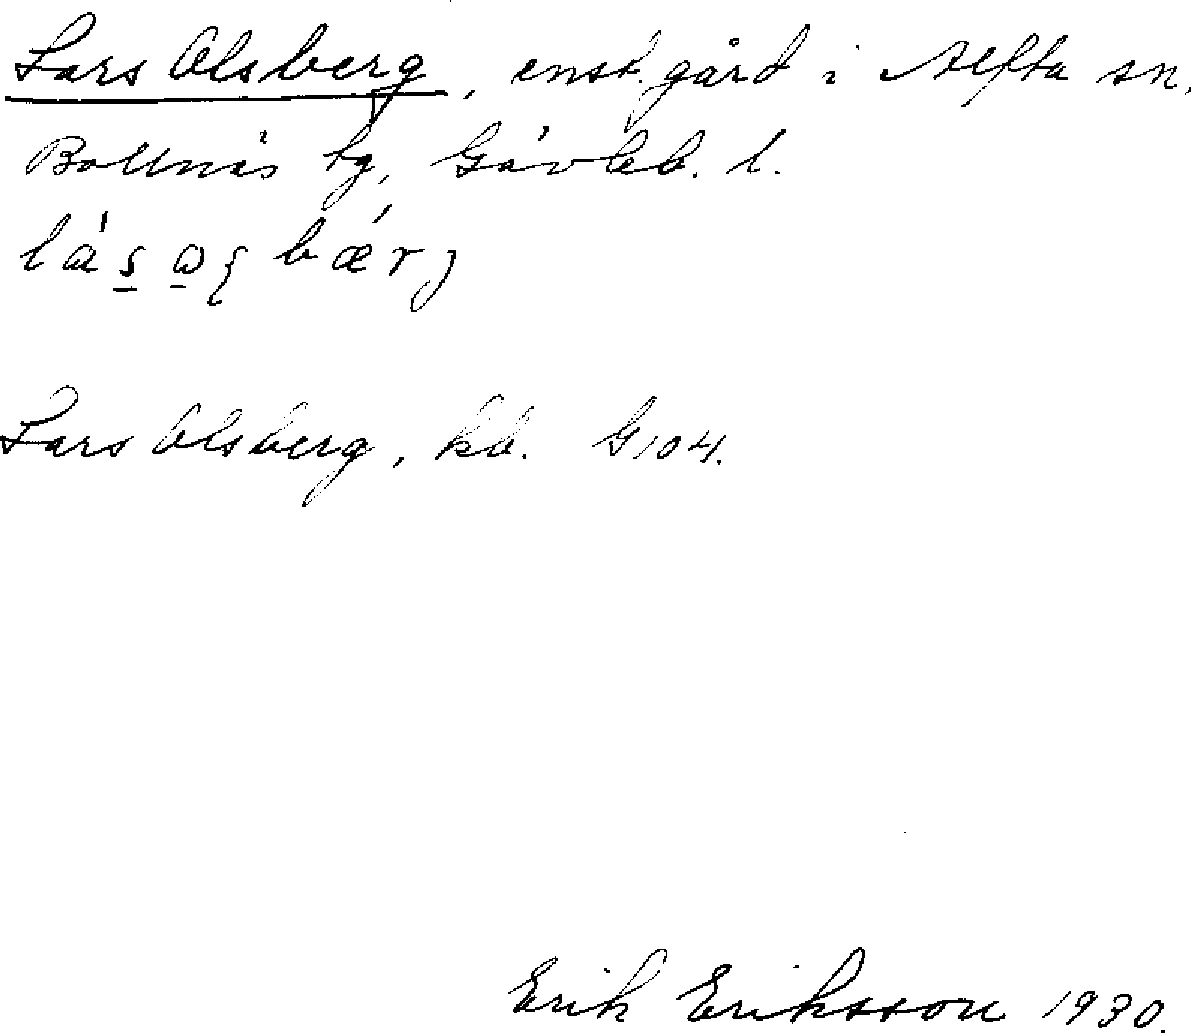 Lars Olsberg, enst. gård i Alfta sn,
Bollnäs tg, Gävleb. l.
Lars Olsberg, kb. G104.
Erik Eriksson 1930.